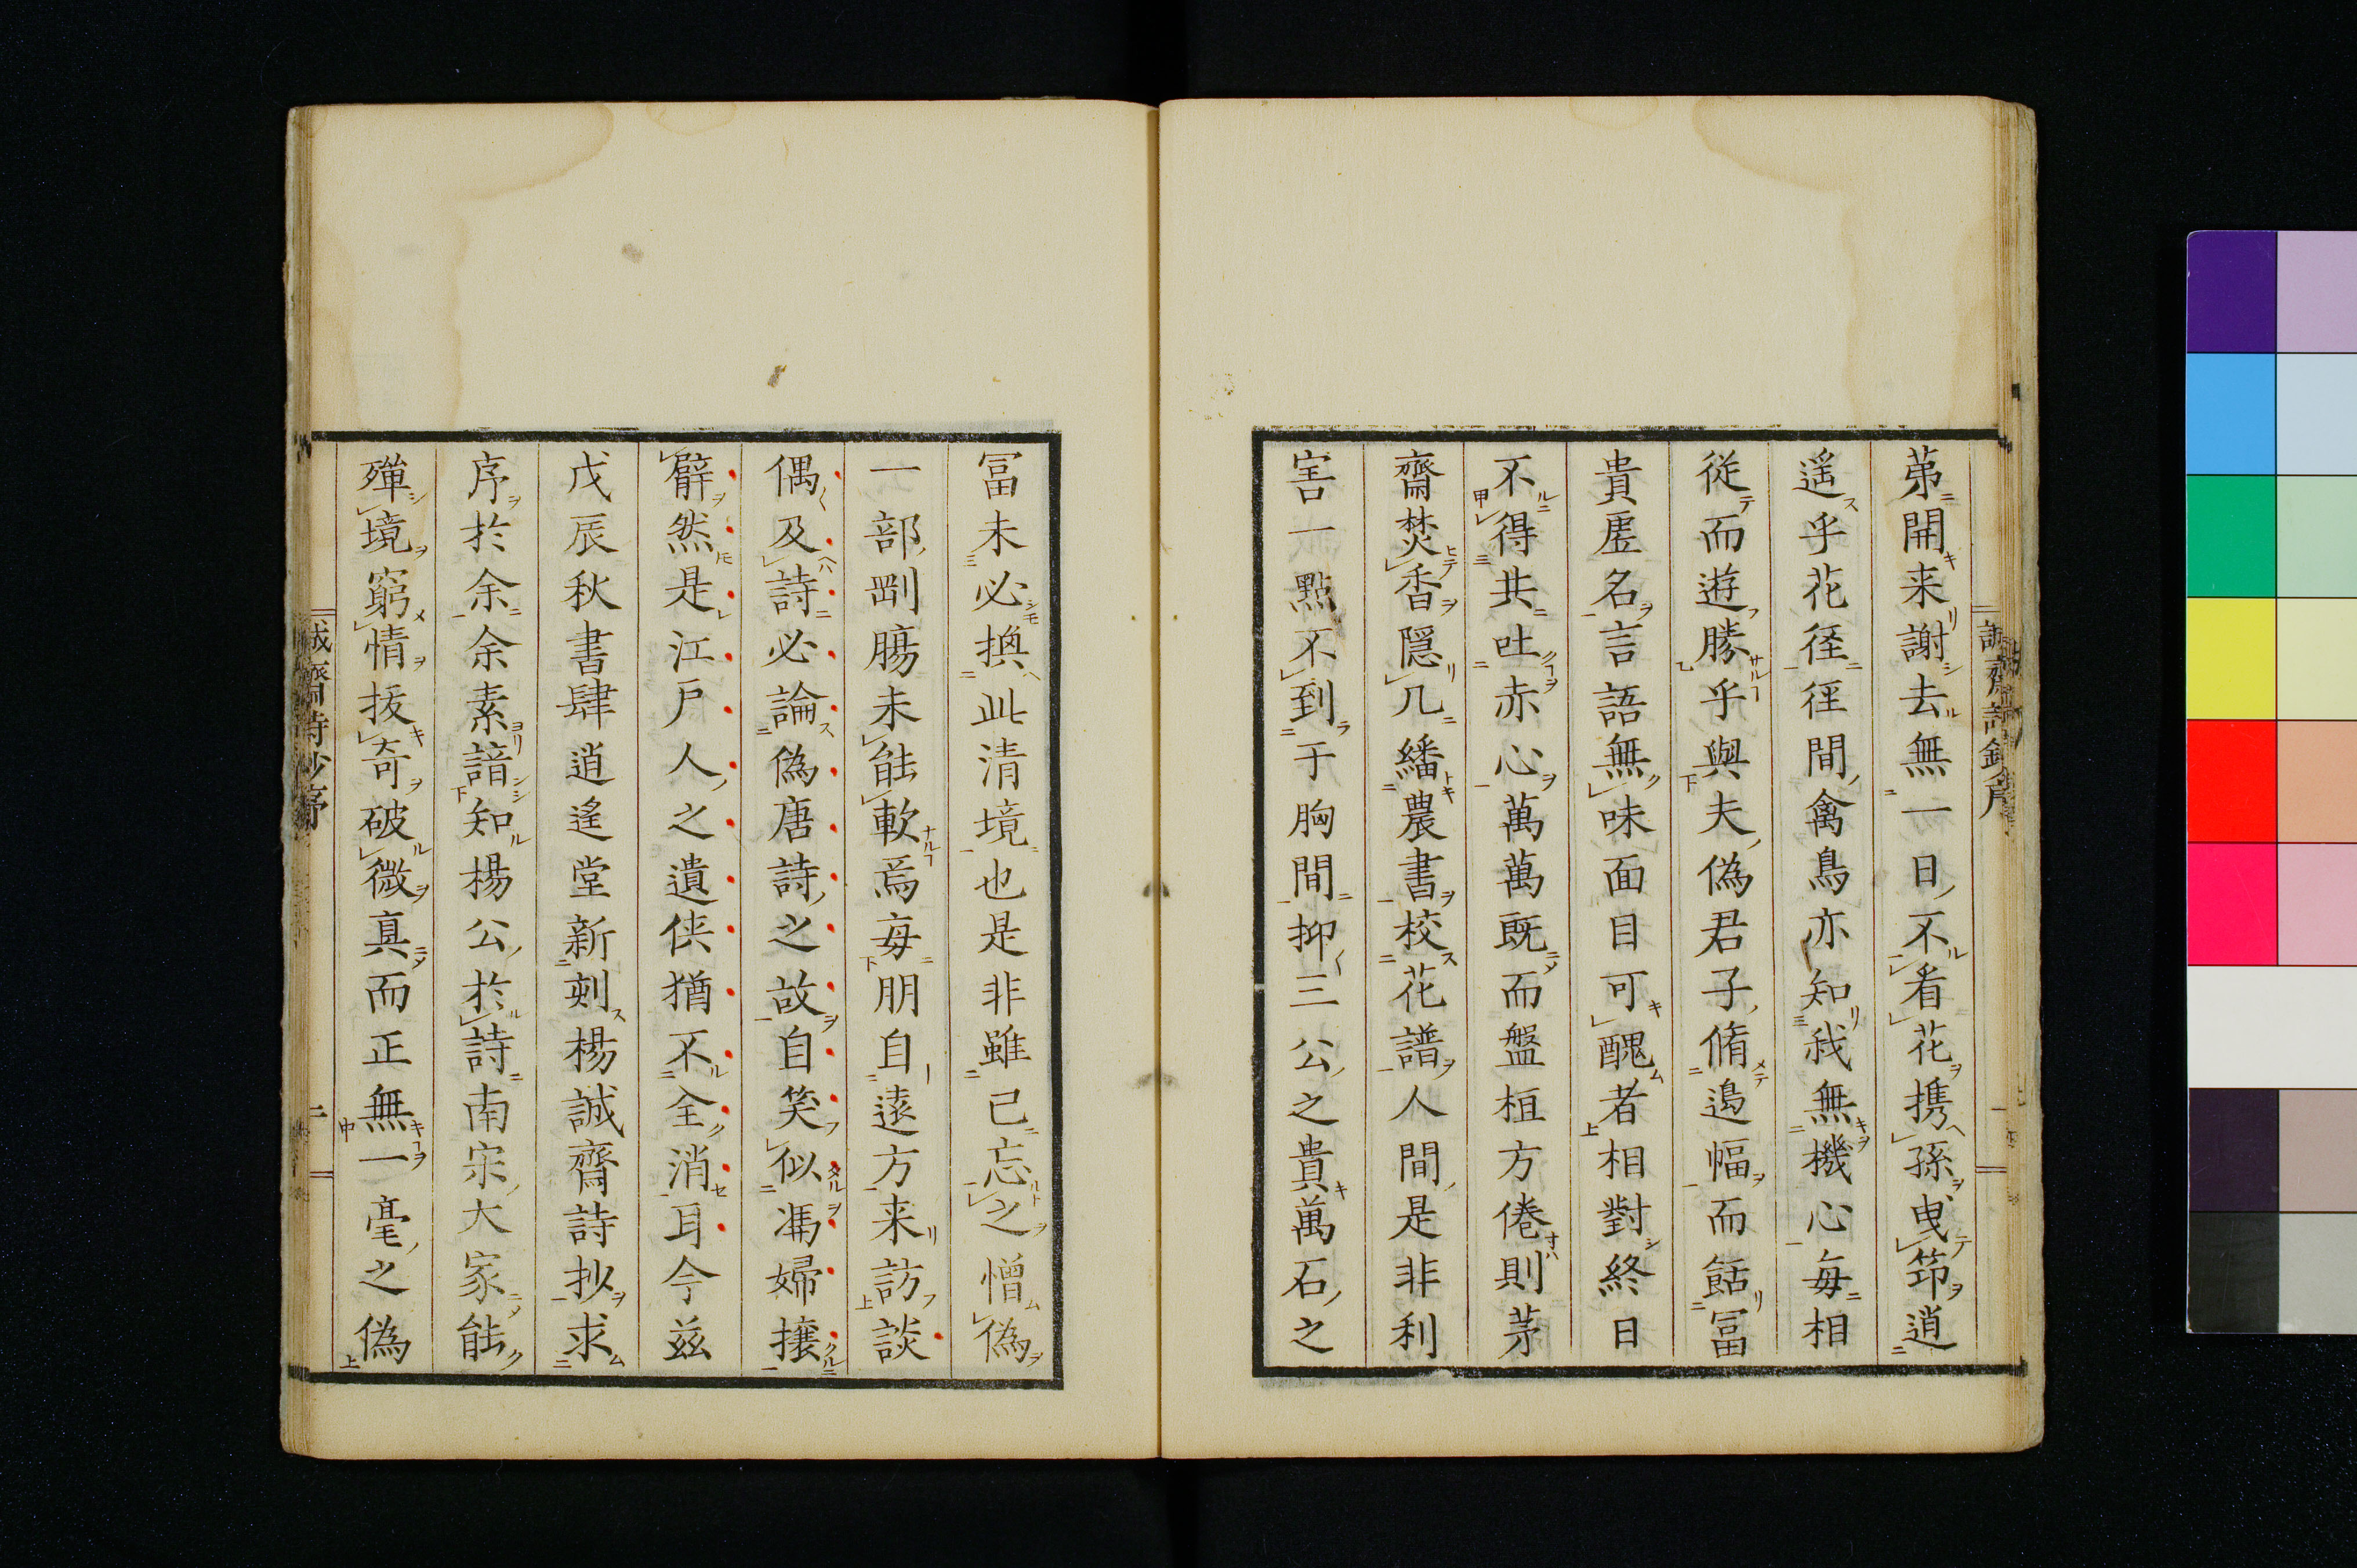 苐開来謝去無一日不看花携孫曳筇逍
遥乎花径径間禽鳥亦知我無機心毎相
従而遊勝乎與夫偽君子脩邉幅而餂冨
貴虗名言語無味面目可醜者相對終日
不得共吐赤心萬萬既而盤桓方倦則茅
齋焚香隠几繙農書校花譜人間是非利
害一點不到于胸間抑三公之貴萬石之
冨未必換此清境也是非雖已忘之憎偽
一部剛腸未能軟焉毎朋自遠方来訪談
偶及詩必論偽唐詩之故自笑似馮婦攘
臂然是江戸人之遺俠猶不全消耳今兹
戊辰秋書肆逍遙堂新刻楊誠齋詩抄求
序於余余素諳知楊公於詩南宋大家能
殫境窮情抜奇破微真而正無一毫之偽
誠齋詩鈔序
誠齋詩抄序
二